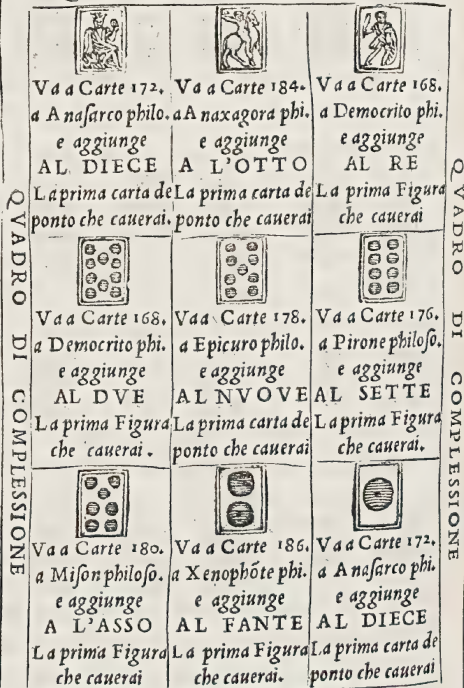 Va a Carte 172.
a Anasarco philo.
e aggiunge
AL DIECE
La prima carta de
ponto che cauerai.
Va a Carte 184.
a Anaxagora phi.
e aggiunge
A L'OTTO
La prima carta de
ponto che cauerai
Va a Carte 168.
a Democrito phi.
e aggiunge
AL RE
La prima Figura
che cauerai
QVADRO DI COMPLESSIONE
Va a Carte 168.
a Democrito phi.
e aggiunge
AL DVE
La prima Figura
che cauerai.
Va a Carte 178.
a Epicuro philo.
e aggiunge
AL NVOVE
La prima carta de
ponto che cauerai
Va a Carte 176.
a Pirone philoſo.
e aggiunge
AL SETTE
La prima Figura
che cauerai.
QVADRO DI COMPLESSIONE
Va a Carte 180.
a Miſon philoſo.
e aggiunge
A L'ASSO
La prima Figura
che cauerai
Va a Carte 186.
a Xenophōte phi.
e aggiunge
AL FANTE
La prima Figura
che cauerai.
Va a Carte 172.
a Anaſarco phi.
e aggiunge
AL DIECE
La prima carta de
ponto che cauerai